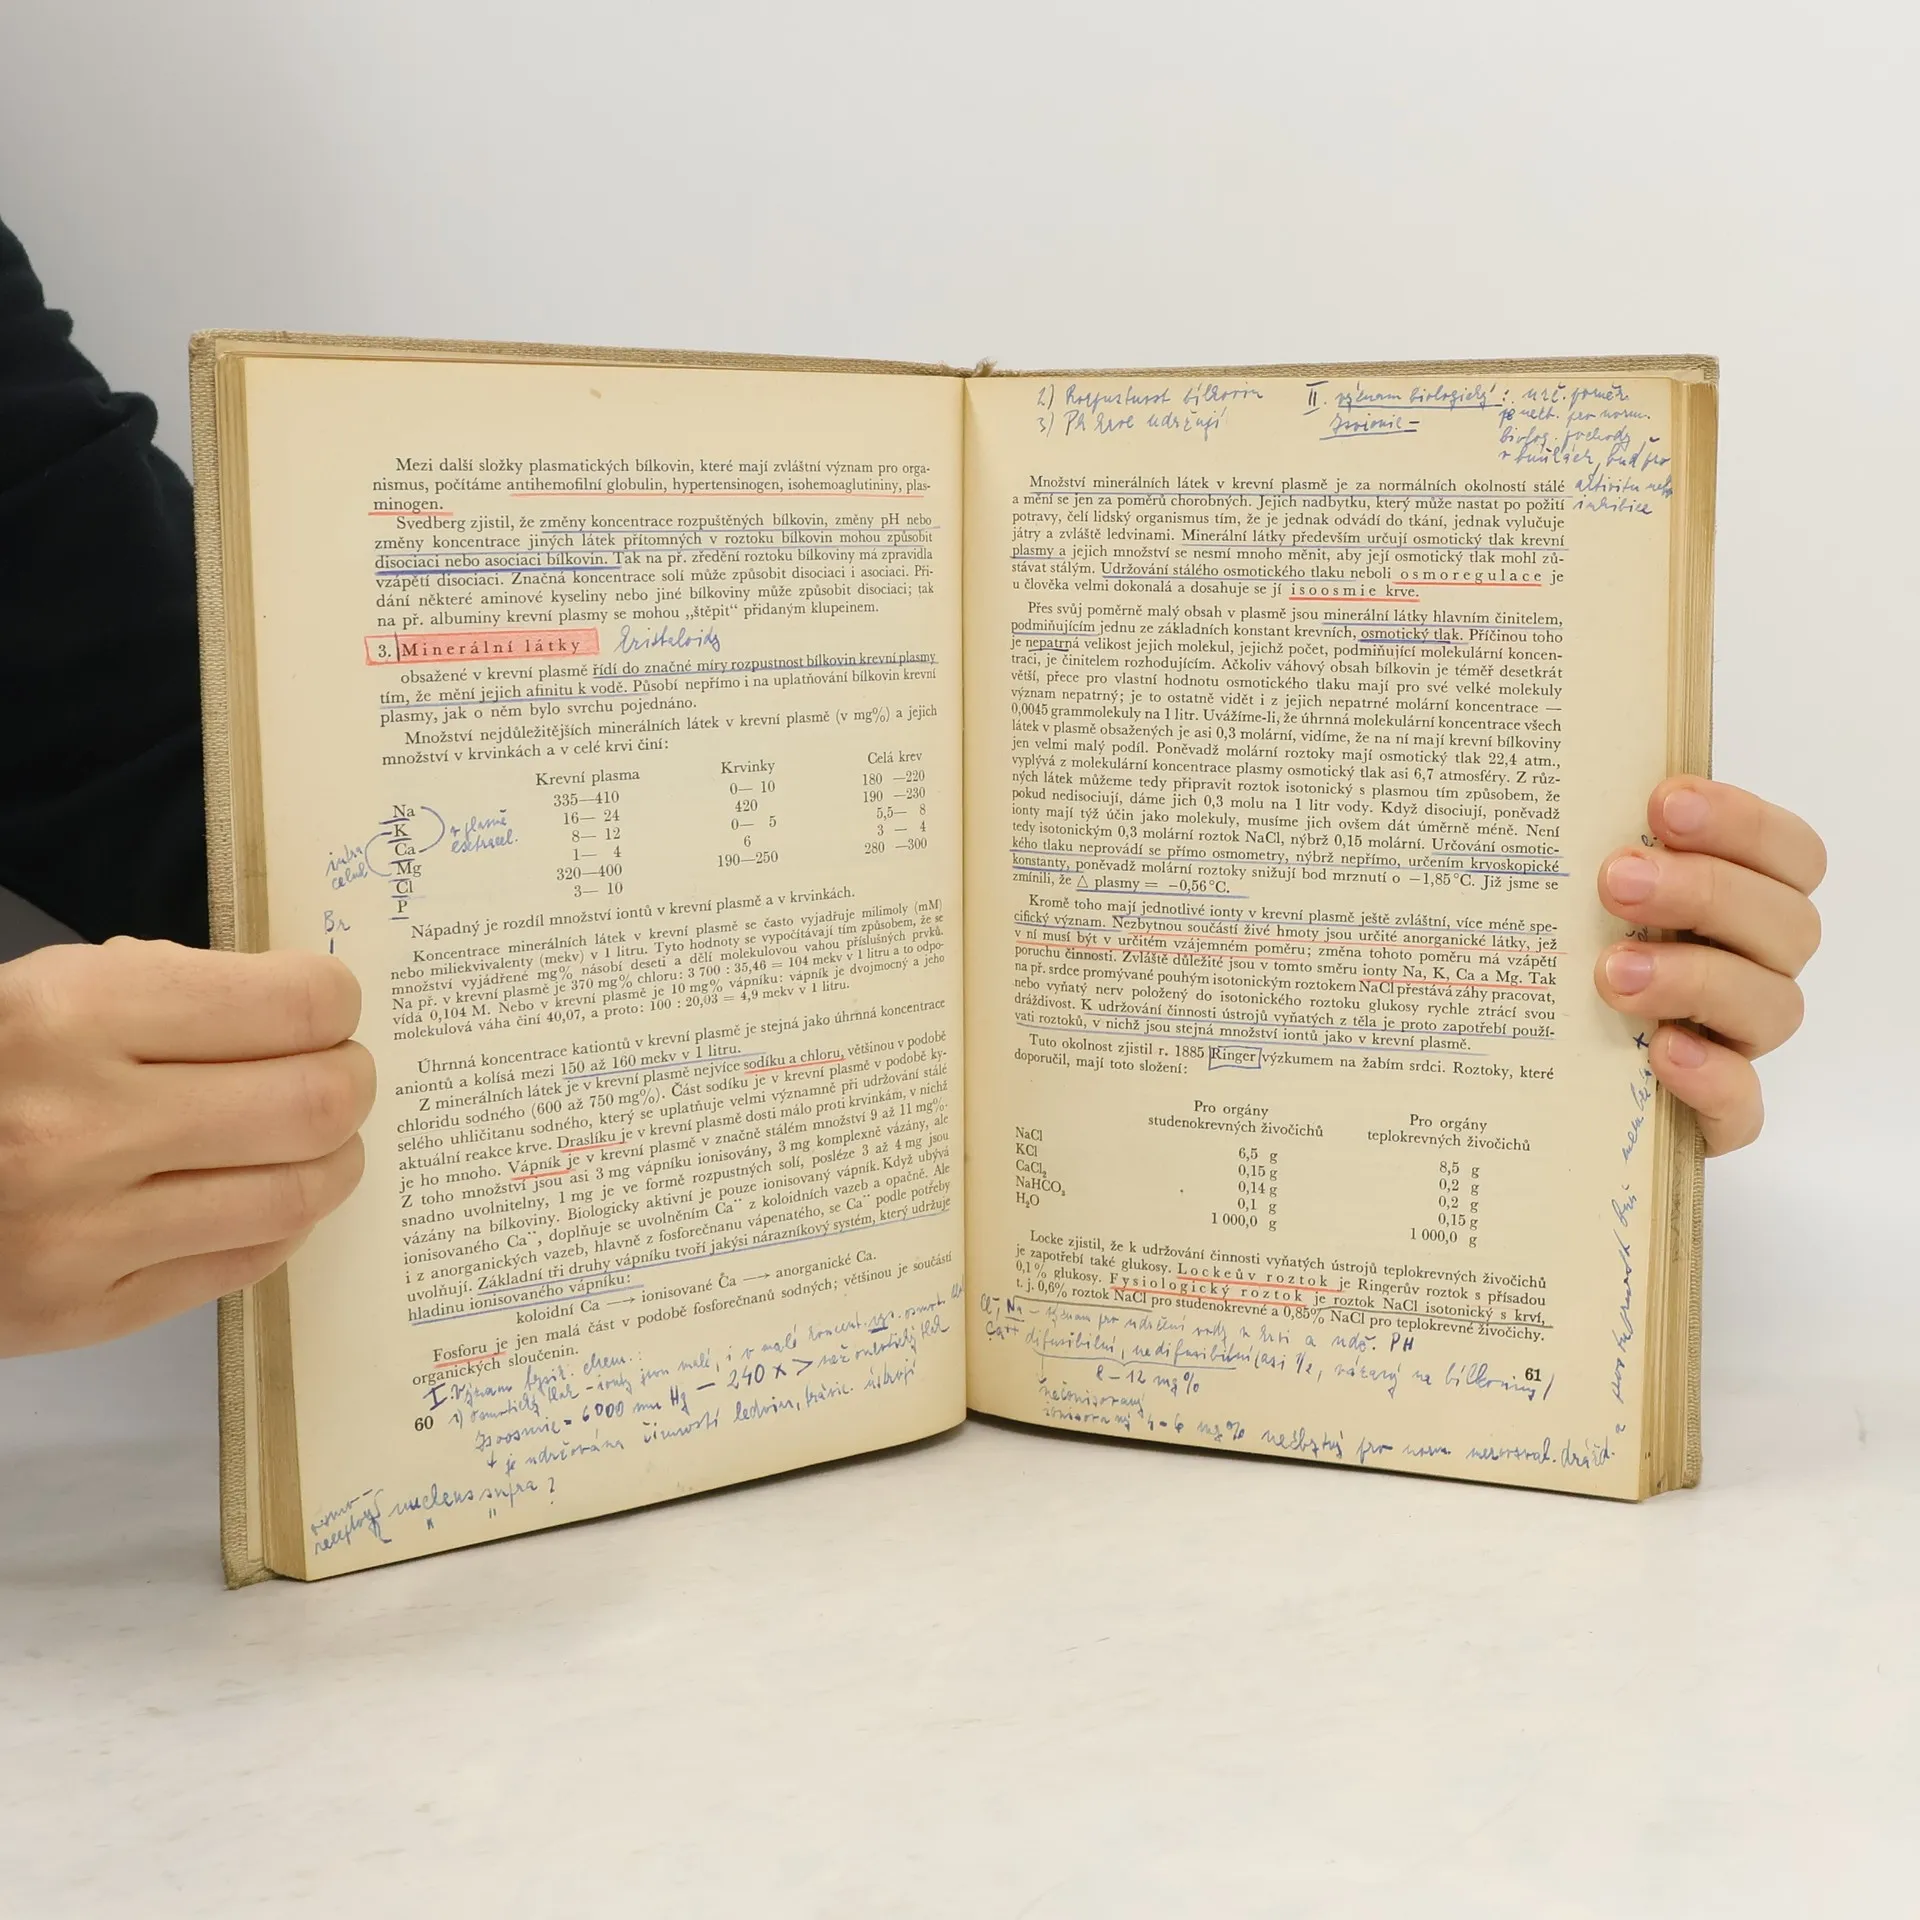 Mezi další složky plasmatických bílkovin, které mají zvláštní význam pro orga-
nismus, počítáme antihemofilní globulin, hypertensinogen, isohemoaglutininy, plas-
minogen.
Svedberg zjistil, že změny koncentrace rozpuštěných bílkovin, změny pH nebo
změny koncentrace jiných látek přítomných v roztoku bílkovin mohou způsobit
disociaci nebo asociaci bílkovin. Tak na př. zředění roztoku bílkoviny má zpravidla
vzápětí disociaci. Značná koncentrace solí může způsobit disociaci i asociaci. Při-
dání některé aminové kyseliny nebo jiné bílkoviny může způsobit disociaci; tak
na př. albuminy krevní plasmy se mohou „štěpit“ přidaným klupeinem.
3. Minerální látky
obsažené v krevní plasmě řídí do značné míry rozpustnost bílkovin krevní plasmy
tím, že mění jejich afinitu k vodě. Působí nepřímo i na uplatňování bílkovin krevní
plasmy, jak o něm bylo svrchu pojednáno.
Množství nejdůležitějších minerálních látek v krevní plasmě (v mg%) a jejich
množství v krvinkách a v celé krvi činí:
Krevní plasma Krvinky Celá krev
Na 335—410 0— 10 180 —220
K 16— 24 420 190 —230
Ca 8— 12 0— 5 5,5— 8
Mg 1— 4 6 3 — 4
Cl 320—400 190—250 280 —300
P 3— 10
Br
Nápadný je rozdíl množství iontů v krevní plasmě a v krvinkách.
Koncentrace minerálních látek v krevní plasmě se často vyjadřuje milimoly (mM)
nebo miliekvivalenty (mekv) v 1 litru. Tyto hodnoty se vypočítávají tím způsobem, že se
množství vyjádřené mg% násobí deseti a dělí molekulovou vahou příslušných prvků.
Na př. v krevní plasmě je 370 mg% chloru: 3 700 : 35,46 = 104 mekv v 1 litru a to odpo-
vídá 0,104 M. Nebo v krevní plasmě je 10 mg% vápníku: vápník je dvojmocný a jeho
molekulová váha činí 40,07, a proto: 100 : 20,03 = 4,9 mekv v 1 litru.
Úhrnná koncentrace kationtů v krevní plasmě je stejná jako úhrnná koncentrace
aniontů a kolísá mezi 150 až 160 mekv v 1 litru.
Z minerálních látek je v krevní plasmě nejvíce sodíku a chloru, většinou v podobě
chloridu sodného (600 až 750 mg%). Část sodíku je v krevní plasmě v podobě ky-
selého uhličitanu sodného, který se uplatňuje velmi významně při udržování stálé
aktuální reakce krve. Draslíku je v krevní plasmě dosti málo proti krvinkám, v nichž
je ho mnoho. Vápník je v krevní plasmě v značně stálém množství 9 až 11 mg%.
Z toho množství jsou asi 3 mg vápníku ionisovány, 3 mg komplexně vázány, ale
snadno uvolnitelny, 1 mg je ve formě rozpustných solí, posléze 3 až 4 mg jsou
vázány na bílkoviny. Biologicky aktivní je pouze ionisovaný vápník. Když ubývá
ionisovaného Ca¨, doplňuje se uvolněním Ca¨ z koloidních vazeb a opačně. Ale
i z anorganických vazeb, hlavně z fosforečnanu vápenatého, se Ca¨ podle potřeby
uvolňují. Základní tři druhy vápníku tvoří jakýsi nárazníkový systém, který udržuje
hladinu ionisovaného vápníku:
koloidní Ca ⟶ ionisované Ca ⟶ anorganické Ca.
Fosforu je jen malá část v podobě fosforečnanů sodných; většinou je součástí
organických sloučenin.
I. význam fysik. chem.:
1) osmotický tlak - ionty jsou malé, i v malé koncent.
Isoosmie = 6000 mm Hg — 240 x > než onkotický tlak
je udržována činností ledvin, tráv. ústrojí
nucleus supra ?
60
2) Rozpustnost bílkovin
3) Ph krve udržují
II. význam biologický: urč. poměr
Isoionie — je netb. pro norm.
biolog. pochody
v buňkách, buď pro
aktivitu nebo
inhibice
Množství minerálních látek v krevní plasmě je za normálních okolností stálé
a mění se jen za poměrů chorobných. Jejich nadbytku, který může nastat po požití
potravy, čelí lidský organismus tím, že je jednak odvádí do tkání, jednak vylučuje
játry a zvláště ledvinami. Minerální látky především určují osmotický tlak krevní
plasmy a jejich množství se nesmí mnoho měnit, aby její osmotický tlak mohl zů-
stávat stálým. Udržování stálého osmotického tlaku neboli osmoregulace je
u člověka velmi dokonalá a dosahuje se jí isoosmie krve.
Přes svůj poměrně malý obsah v plasmě jsou minerální látky hlavním činitelem,
podmiňujícím jednu ze základních konstant krevních, osmotický tlak. Příčinou toho
je nepatrná velikost jejich molekul, jejichž počet, podmiňující molekulární koncen-
traci, je činitelem rozhodujícím. Ačkoliv váhový obsah bílkovin je téměř desetkrát
větší, přece pro vlastní hodnotu osmotického tlaku mají pro své velké molekuly
význam nepatrný; je to ostatně vidět i z jejich nepatrné molární koncentrace —
0,0045 grammolekuly na 1 litr. Uvážíme-li, že úhrnná molekulární koncentrace všech
látek v plasmě obsažených je asi 0,3 molární, vidíme, že na ní mají krevní bílkoviny
jen velmi malý podíl. Poněvadž molární roztoky mají osmotický tlak 22,4 atm.,
vyplývá z molekulární koncentrace plasmy osmotický tlak asi 6,7 atmosféry. Z růz-
ných látek můžeme tedy připravit roztok isotonický s plasmou tím způsobem, že
pokud nedisociují, dáme jich 0,3 molu na 1 litr vody. Když disociují, poněvadž
ionty mají týž účin jako molekuly, musíme jich ovšem dát úměrně méně. Není
tedy isotonickým 0,3 molární roztok NaCl, nýbrž 0,15 molární. Určování osmotic-
kého tlaku neprovádí se přímo osmometry, nýbrž nepřímo, určením kryoskopické
konstanty, poněvadž molární roztoky snižují bod mrznutí o −1,85 °C. Již jsme se
zmínili, že △ plasmy = −0,56 °C.
Kromě toho mají jednotlivé ionty v krevní plasmě ještě zvláštní, více méně spe-
cifický význam. Nezbytnou součástí živé hmoty jsou určité anorganické látky, jež
v ní musí být v určitém vzájemném poměru; změna tohoto poměru má vzápětí
poruchu činnosti. Zvláště důležité jsou v tomto směru ionty Na, K, Ca a Mg. Tak
na př. srdce promývané pouhým isotonickým roztokem NaCl přestává záhy pracovat,
nebo vyňatý nerv položený do isotonického roztoku glukosy rychle ztrácí svou
dráždivost. K udržování činnosti ústrojů vyňatých z těla je proto zapotřebí použí-
vati roztoků, v nichž jsou stejná množství iontů jako v krevní plasmě.
Tuto okolnost zjistil r. 1885 Ringer výzkumem na žabím srdci. Roztoky, které
doporučil, mají toto složení:
Pro orgány Pro orgány
studenokrevných živočichů teplokrevných živočichů
NaCl 6,5 g 8,5 g
KCl 0,15 g 0,2 g
CaCl₂ 0,14 g 0,2 g
NaHCO₃ 0,1 g 0,15 g
H₂O 1 000,0 g 1 000,0 g
Locke zjistil, že k udržování činnosti vyňatých ústrojů teplokrevných živočichů
je zapotřebí také glukosy. Lockeův roztok je Ringerův roztok s přísadou
0,1 % glukosy. Fysiologický roztok je roztok NaCl isotonický s krví,
t. j. 0,6% roztok NaCl pro studenokrevné a 0,85% NaCl pro teplokrevné živočichy.
Cl⁻, Na — význam pro udržení vody v krvi a udž. PH
Ca⁺⁺ difusibilní, nedifusibilní (asi 1/2, vázaný na bílkoviny)
8 – 12 mg%
neionisovaný
ionisovaný 4–6 mg% nezbytný pro norm. nervosval. drážd.
61